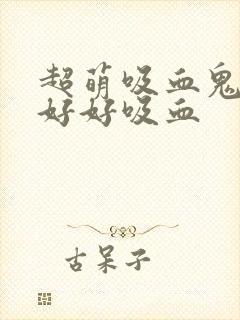 超萌吸血鬼
好好吸血
古呆子